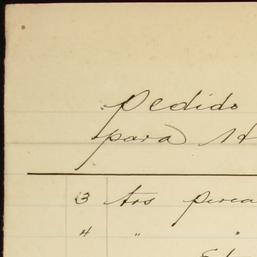 Pedido
para 1
3 tos perca
4 " "